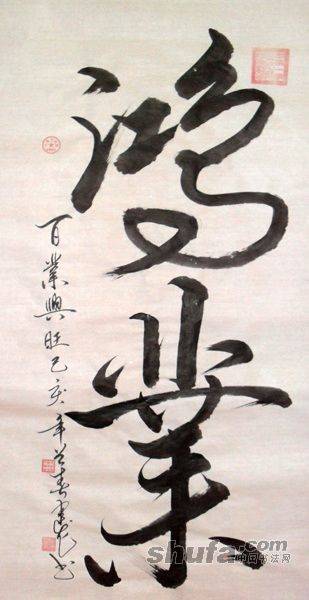 鸿業
百業興旺己亥年春
shufa.com
中国书法网